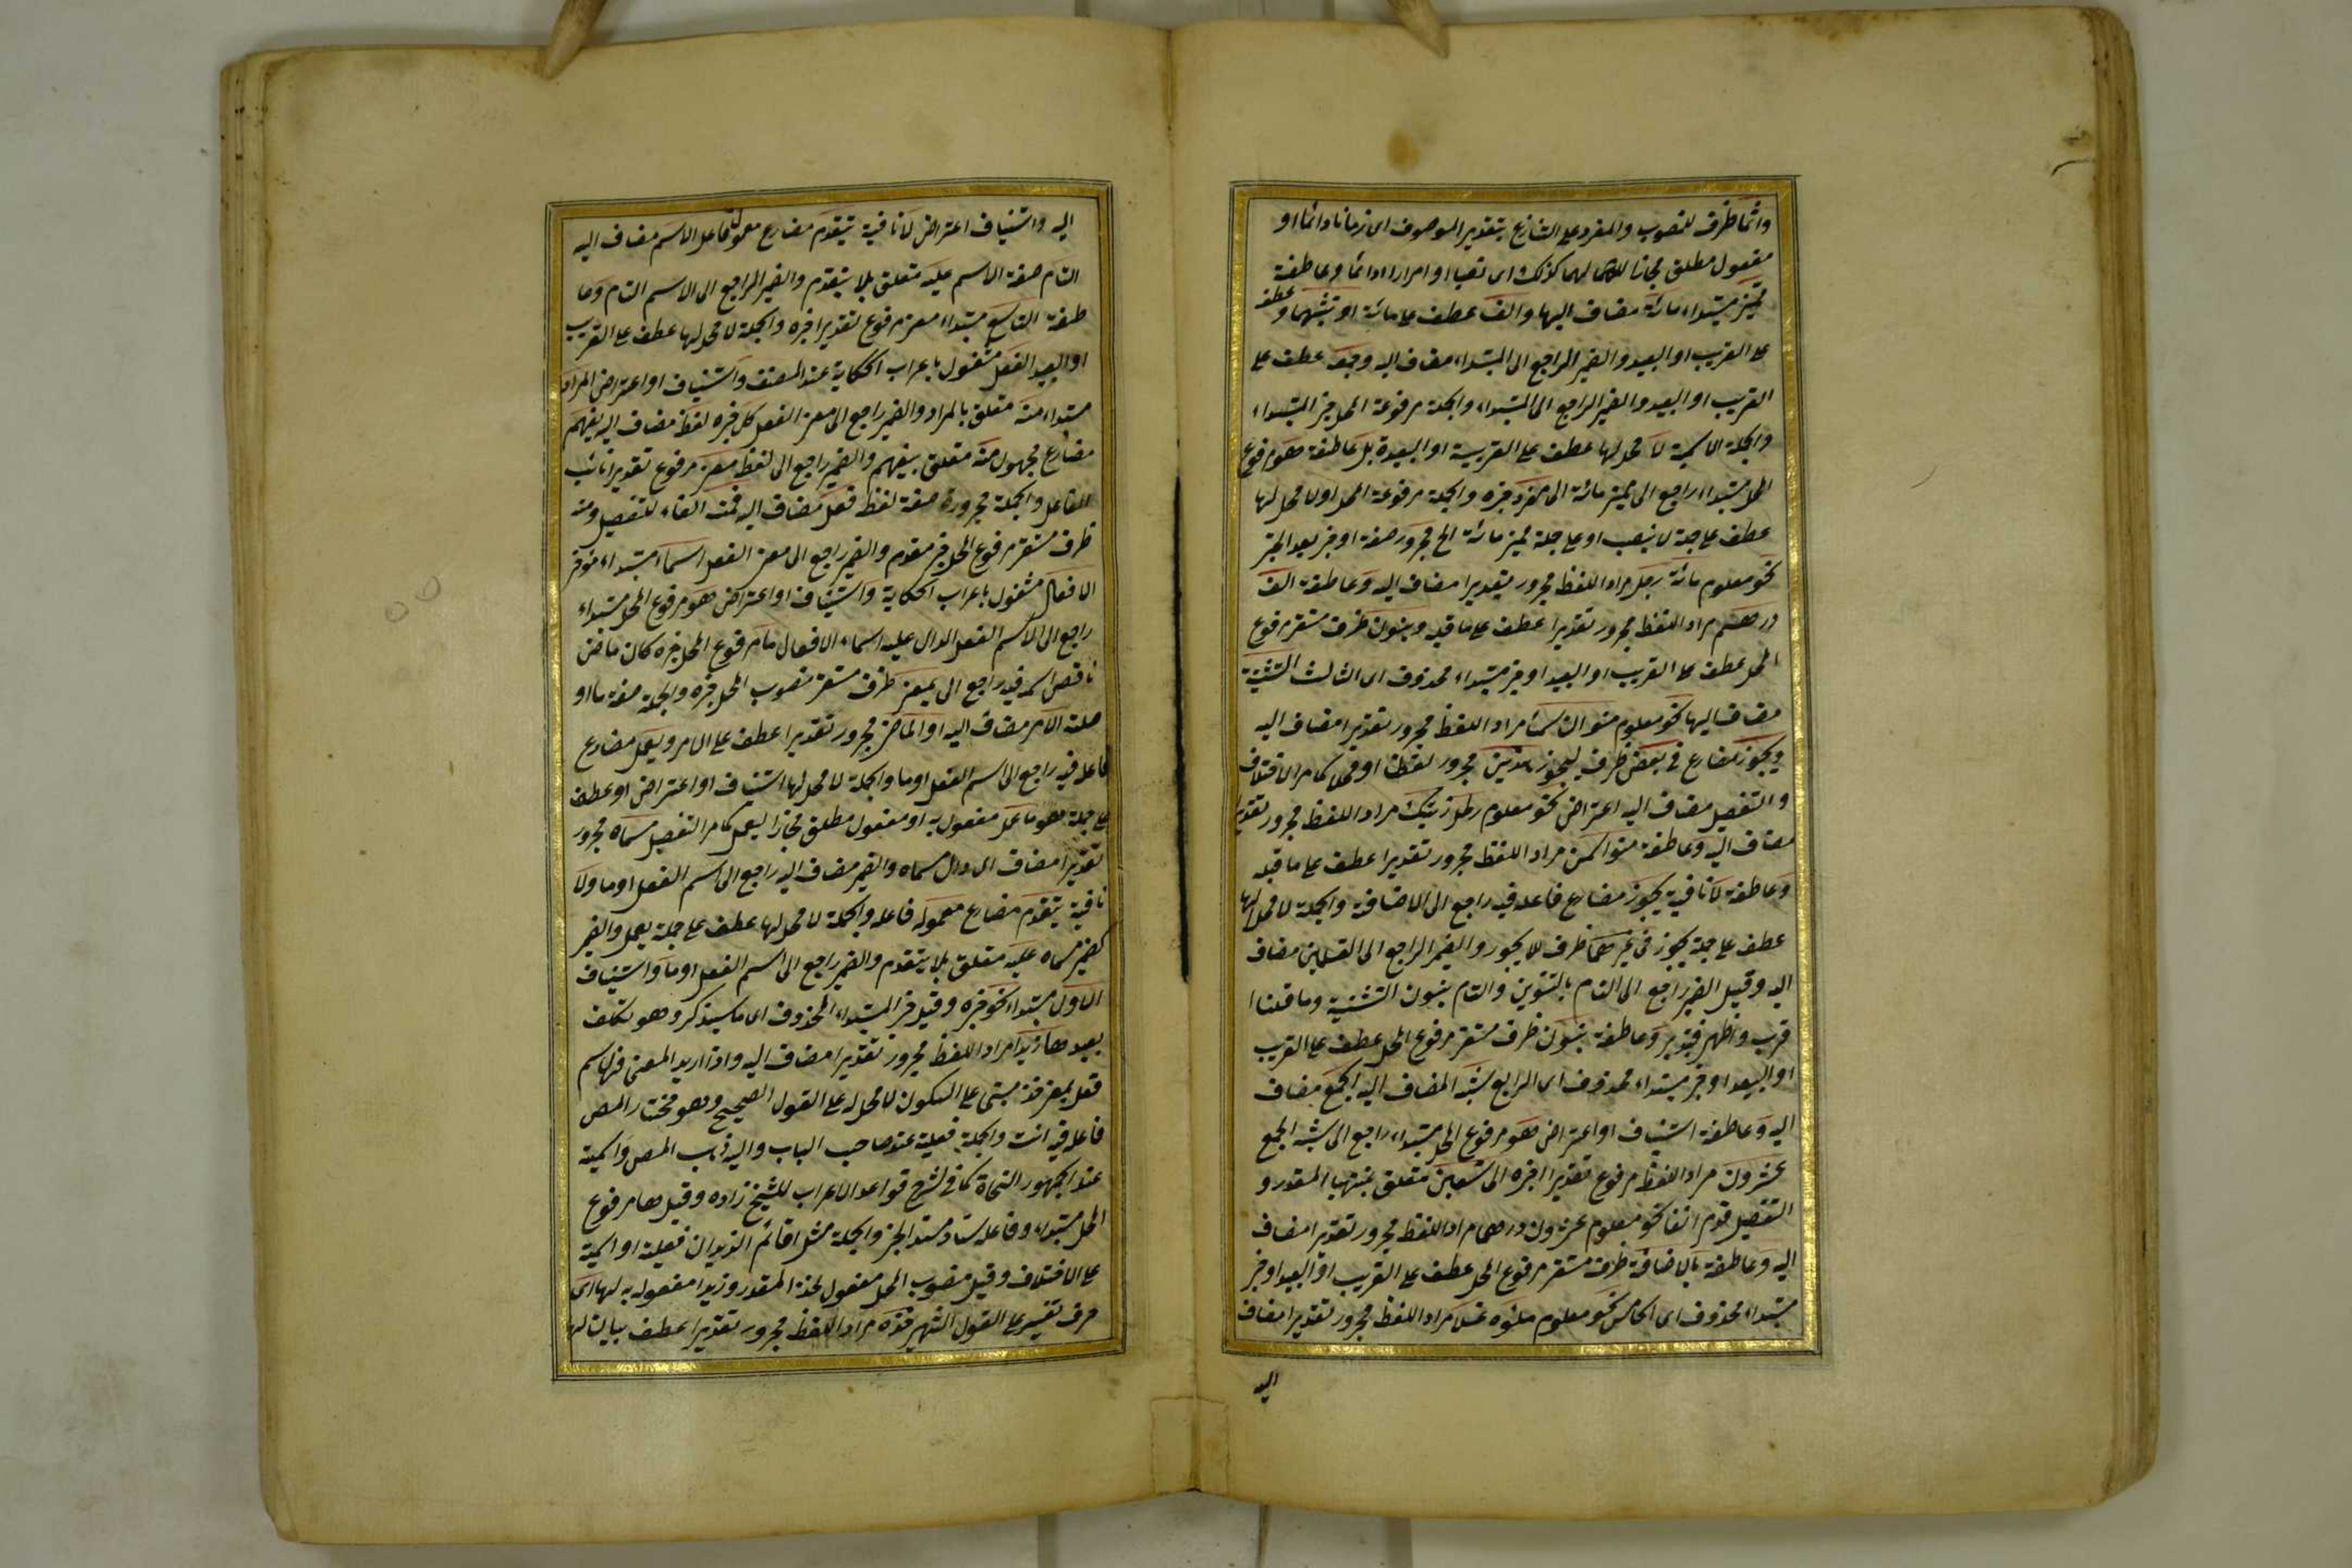 وائما ظرف للنصوب والمفرد على التنازع بتقدير الموصوف اى زمانا دائما او
مفعول مطلق مجازا لهما كذلك اى نصبا او امرارا دائما وعاطفة
مميز مبتداء مائة مضاف اليها والف عطف على مائة او تثنيتهما وعطف
على القريب او البعيد والضمير الراجع الى المبتداء مضاف اليه وجمعه عطف على
القريب او البعيد والضمير الراجع الى المبتداء والجملة مرفوعة المحل خبر المبتداء
والجملة الاسمية لا محل لها عطف على القريبة او البعيدة بل عاطفة هو مرفوع
المحل مبتداء راجع الى مميز مائة الى مفرد خبره والجملة مرفوعة المحل او لا محل لها
عطف على جملة لا ينصب او على جملة مميز مائة الخ مجرور صفة او خبر بعد الخبر
نحو معلوم مائة رجل مراد اللفظ مجرور تقديرا مضاف اليه وعاطفة الف
درهم مراد اللفظ مجرور تقديرا عطف على ما قبله وبنون ظرف مستقر مرفوع
المحل عطف على القريب او البعيد او خبر مبتداء محذوف اى الثالث التثنية
مضاف اليها نحو معلوم منوان سمنا مراد اللفظ مجرور تقديرا مضاف اليه
ويجوز مضارع في بعض ظرف ليجوز هذين مجرور لفظا او محلا كما مر الاختلاف
والتفصيل مضاف اليه اعتراض نحو معلوم رطل زيت مراد اللفظ مجرور تقديرا
مضاف اليه وعاطفة منوا سمن مراد اللفظ مجرور تقديرا عطف على ما قبله
وعاطفة لا نافية يجوز مضارع فاعله فيه راجع الى الاضافة والجملة لا محل لها
عطف على جملة يجوز في غيرهما ظرف للا يجوز والضمير الراجع الى القسمين مضاف
اليه وقيل الضمير راجع الى التام بالتنوين والتام بنون التثنية وما قلنا ا
قرب واظهر فتدبر وعاطفة بنون ظرف مستقر مرفوع المحل عطف على القريب
او البعيد او خبر مبتداء محذوف اى الرابع شبه المضاف اليه الجمع مضاف
اليه وعاطفة استيناف او اعتراض هو مرفوع المحل مبتداء راجع الى شبه الجمع
عشرون مراد اللفظ مرفوع تقديرا خبره الى تسعين متعلق بمنتهيا المقدر و
التفصيل قدم انفا نحو معلوم عشرون درهما مراد اللفظ مجرور تقديرا مضاف
اليه وعاطفة بالاضافة ظرف مستقر مرفوع المحل عطف على القريب او البعيد او خبر
مبتداء محذوف اى الخامس نحو معلوم ملئوه عسلا مراد اللفظ مجرور تقديرا مضاف
اليه
اليه واستيناف اعتراض لا نافية يتقدم مضارع معمول فاعل الاسم مضاف اليه
التام صفة الاسم عليه متعلق بلا يتقدم والضمير الراجع الى الاسم التام وعا
طفة التاسع مبتداء معنى مرفوع تقديرا خبره والجملة لا محل لها عطف على القريب
او البعيد الفعل مشغول باعراب الحكاية عند المصنف واستيناف او اعتراض المراد
مبتداء منه متعلق بالمراد والضمير راجع الى معنى الفعل كل خبره لفظ مضاف اليه يفهم
مضارع مجهول منه متعلق بيفهم والضمير راجع الى لفظ معنى مرفوع تقديرا نائب
الفاعل والجملة مجرورة صفة لفظ فعل مضاف اليه فمنه الفاء للتفصيل ومنه
ظرف مستقر مرفوع المحل خبر مقدم والضمير راجع الى معنى الفعل اسماء مبتداء مؤخر
الافعال مشغول باعراب الحكاية واستيناف او اعتراض هو مرفوع المحل مبتداء
راجع الى الاسم الفعل الدال عليه اسماء الافعال ما مرفوع المحل خبره كان ماض
ناقص اسمه فيه راجع الى بمعنى ظرف مستقر منصوب المحل خبره والجملة صفة ما او
صلة الامر مضاف اليه او الماضى مجرور تقديرا عطف على الامر ويعمل مضارع
فاعله فيه راجع الى اسم الفعل او ما والجملة لا محل لها استيناف او اعتراض او عطف
على جملة هو ما عمل مفعول به او مفعول مطلق مجازا ليعمل كما مر التفصيل مسماه مجرور
تقديرا مضاف الى دال مسماه والضمير مضاف اليه راجع الى اسم الفعل او ما ولا
نافية يتقدم مضارع معموله فاعله والجملة لا محل لها عطف على جملة يعمل والضمير
كضمير مسماه عليه متعلق بلا يتقدم والضمير راجع الى اسم الفعل او ما واستيناف
الاول مبتداء نحو خبره وقيل خبر المبتداء المحذوف اى ما سيذكر وهو تكلف
بعيد ها زيدا مراد اللفظ مجرور تقديرا مضاف اليه واذا اريد المعنى فها اسم
فعل بمعنى خذ مبنى على السكون لا محل له على القول الصحيح وهو مختار المص
فاعله فيه انت والجملة فعلية عند صاحب الباب واليه ذهب المص واسمية
عند الجمهور النحاة كما في شرح قواعد الاعراب للشيخ زاده وقيل ها مرفوع
المحل مبتداء وفاعله ساد مسد الخبر والجملة مثل اقائم الزيدان فعلية او اسمية
على الاختلاف وقيل منصوب المحل مفعول لخذ المقدر وزيدا مفعول به لها اى
حرف تفسير على القول الشهير خذه مراد اللفظ مجرور تقديرا عطف بيان لها